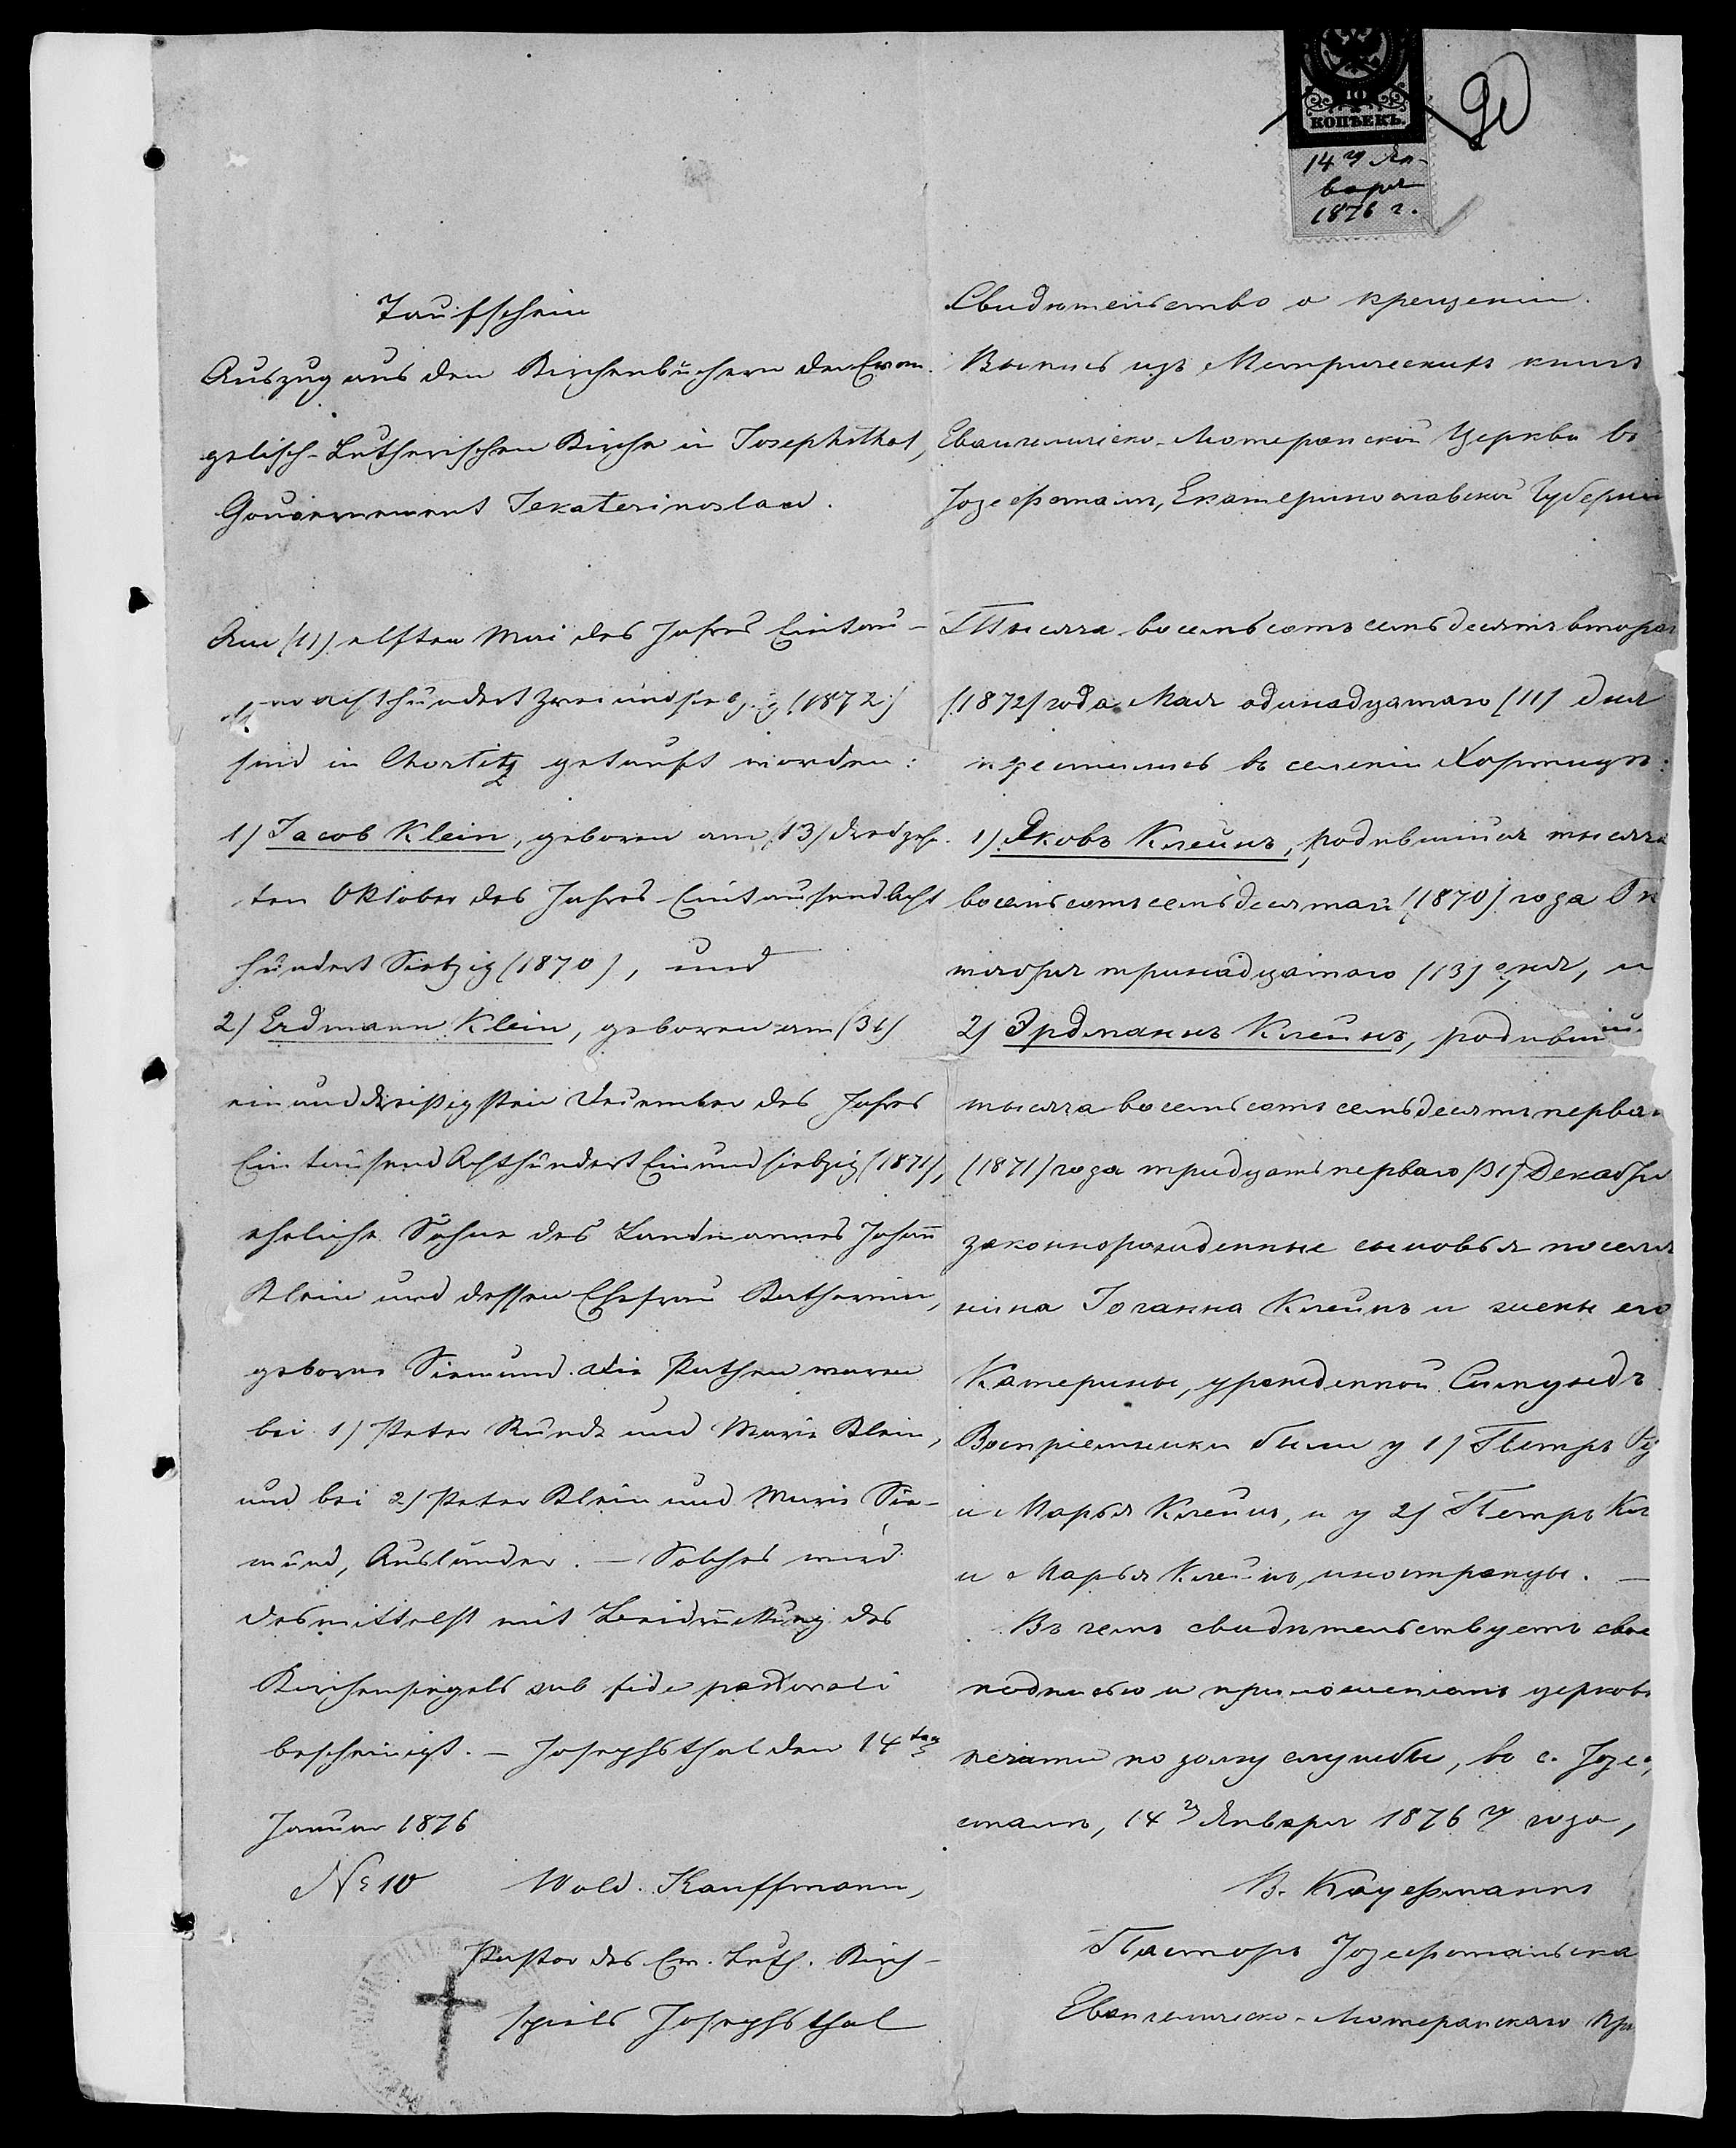 10
КОПѢЕКЪ.
14го Ян-
варя
1876 г.
90
Taufschein
Auszug aus den Kirchenbüchern der Evan-
gelisch-Lutherischen Kirche in Josephsthal,
Gouvernement Jekaterinoslaw.
Am (11) elften Mai des Jahres Eintau-
achthundert zweiundsiebzig (1872)
sind in Chortitz getauft worden:
1) Jacob Klein, geboren am (13) dreizehn-
ten Oktober des Jahres Eintausendacht
hundert Siebzig (1870), und
2) Erdmann Klein, geboren am (31)
einunddreißigsten December des Jahres
Eintausend Achthundert Einundsiebzig (1871),
eheliche Söhne des Landmannes Johann
Klein und dessen Ehefrau Katharina,
geborne Siemund. Die Pathen waren
bei 1) Peter Kundt und Marie Klein,
und bei 2) Peter Klein und Marie Sie-
mund, Ausländer. — Solches wird
desmittelst mit Beidrückung des
Kirchensiegels sub fide pastorali
bescheinigt. — Josephsthal den 14ten
Januar 1876
№ 10 Wold. Kauffmann,
Pastor des Ev. Luth. Kirch-
spiels Josephsthal
Свидѣтельство о крещеніи.
Выпись изъ Метрическихъ книгъ
Евангелическо-Лютеранской Церкви въ
Іозефсталѣ, Екатеринославской Губерніи
Тысяча восемьсотъ семьдесятъ втораго
(1872) года Мая одинадцатаго (11) дня
крестились въ селеніи Хортицѣ:
1) Яковъ Клейнъ, родившійся тысяча
восемьсотъ семьдесятаго (1870) года Ок
тября тринадцатаго (13) дня, и
2) Эрдманнъ Клейнъ, родивший
тысяча восемьсотъ семьдесятъ перва
(1871) года тридцать перваго (31) Декабря
законнорожденные сыновья поселя
нина Іоганна Клейнъ и жены его
Катерины, урожденной Симундъ
Воспріемники были у 1) Петръ
и Марья Клейнъ, и у 2) Петръ Кл
и Марья Клейнъ, иностранцы. —
Въ чемъ свидѣтельствуетъ свое
подписью и приложеніемъ церков
печати по долгу службы, въ с. Іозеф
сталѣ, 14го Января 1876го года,
В. Кауфманнъ
Пасторъ Іозефстальска
Евангелическо-Лютеранскаго При